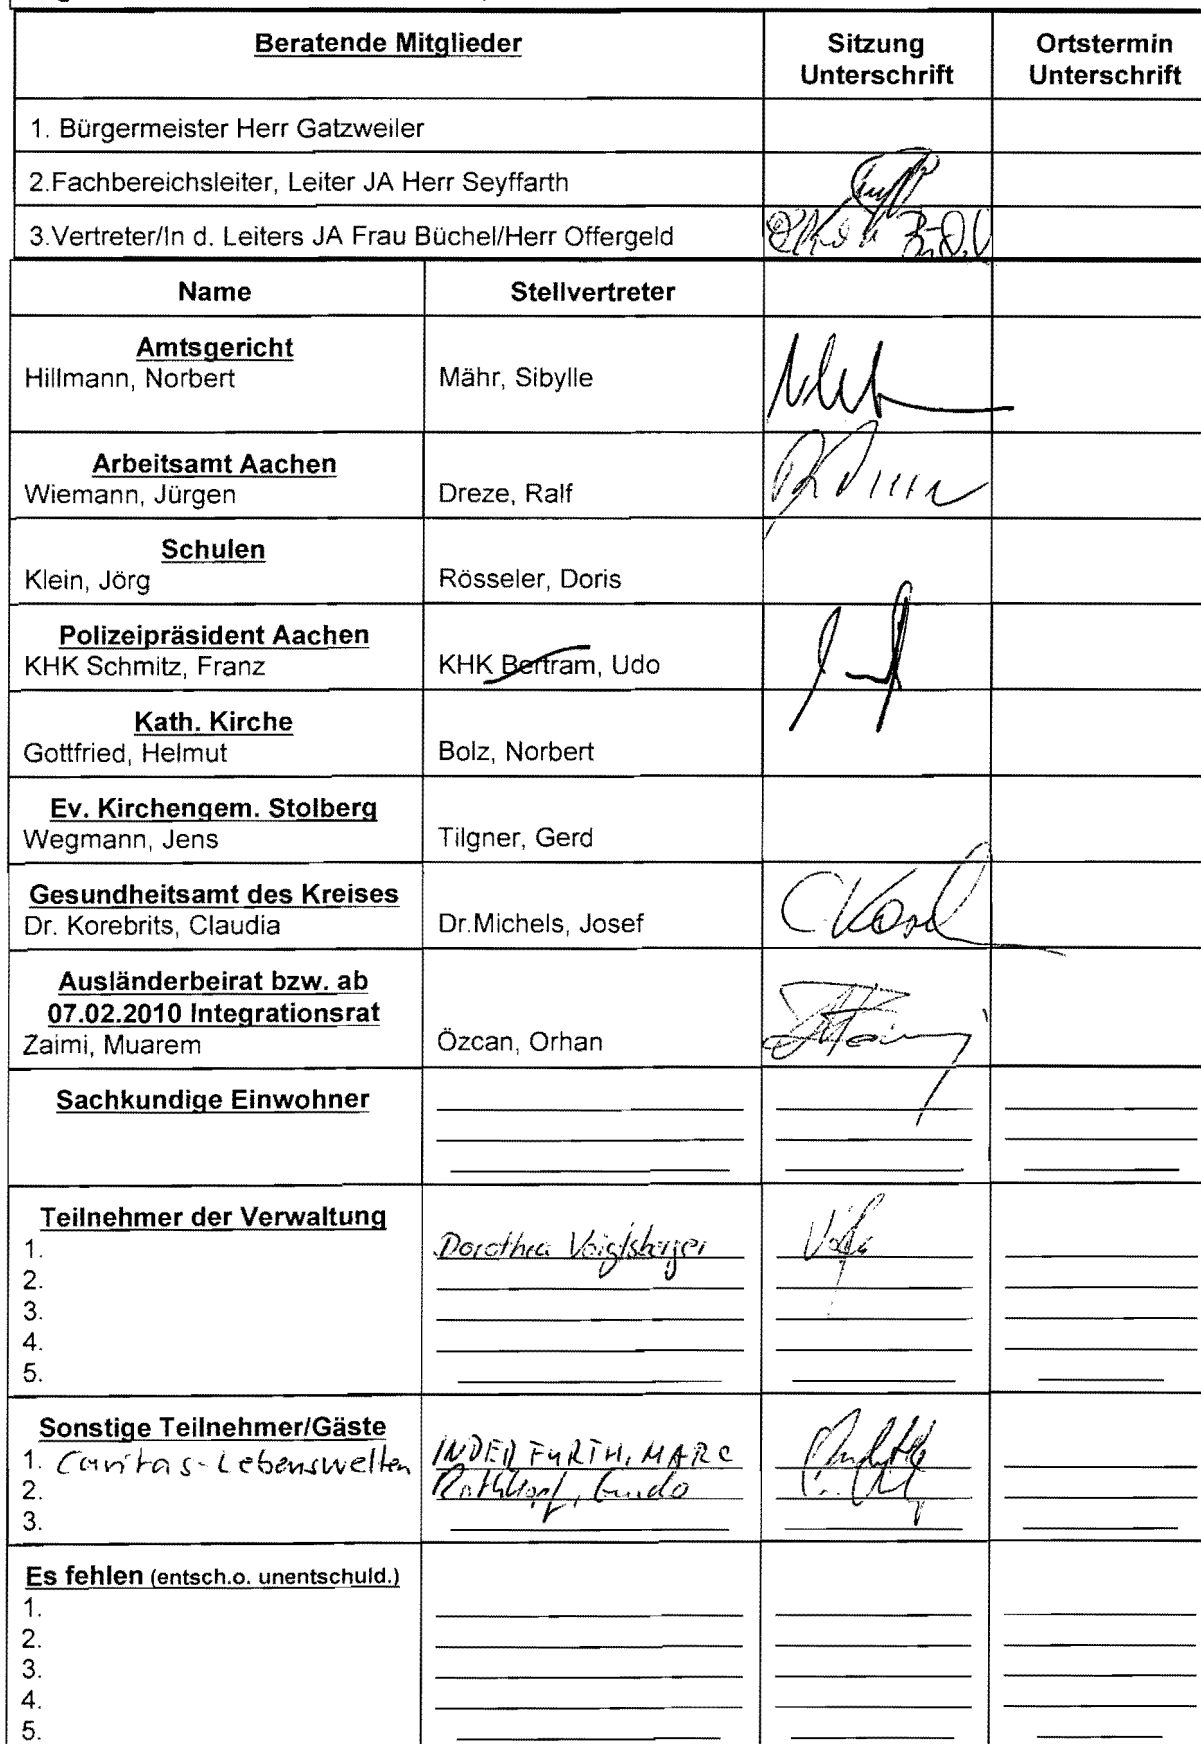 Beratende Mitglieder
Sitzung
Unterschrift
Ortstermin
Unterschrift
1. Bürgermeister Herr Gatzweiler
2.Fachbereichsleiter, Leiter JA Herr Seyffarth
3.Vertreter/In d. Leiters JA Frau Büchel/Herr Offergeld
Name
Stellvertreter
Amtsgericht
Hillmann, Norbert
Mähr, Sibylle
Arbeitsamt Aachen
Wiemann, Jürgen
Dreze, Ralf
Schulen
Klein, Jörg
Rösseler, Doris
Polizeipräsident Aachen
KHK Schmitz, Franz
KHK Bertram, Udo
Kath. Kirche
Gottfried, Helmut
Bolz, Norbert
Ev. Kirchengem. Stolberg
Wegmann, Jens
Tilgner, Gerd
Gesundheitsamt des Kreises
Dr. Korebrits, Claudia
Dr.Michels, Josef
Ausländerbeirat bzw. ab
07.02.2010 Integrationsrat
Zaimi, Muarem
Özcan, Orhan
Sachkundige Einwohner
Teilnehmer der Verwaltung
1.
Dorothea Voigtsberger
2.
3.
4.
5.
Sonstige Teilnehmer/Gäste
1. Caritas-Lebenswelten
INDERFURTH, MARC
2.
Rothkopf, Guido
3.
Es fehlen (entsch.o. unentschuld.)
1.
2.
3.
4.
5.